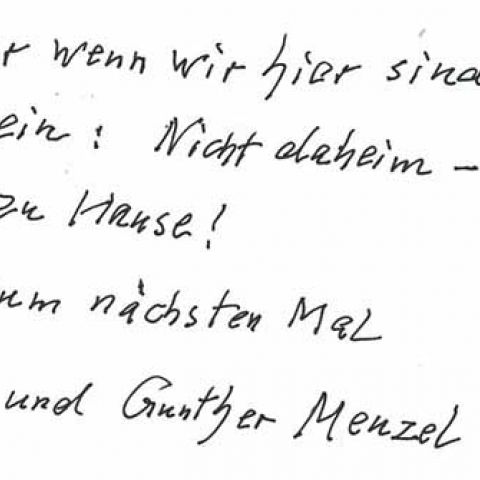 r wenn wir hier sind
ein: Nicht daheim –
zu Hause!
um nächsten Mal
und Gunther Menzel